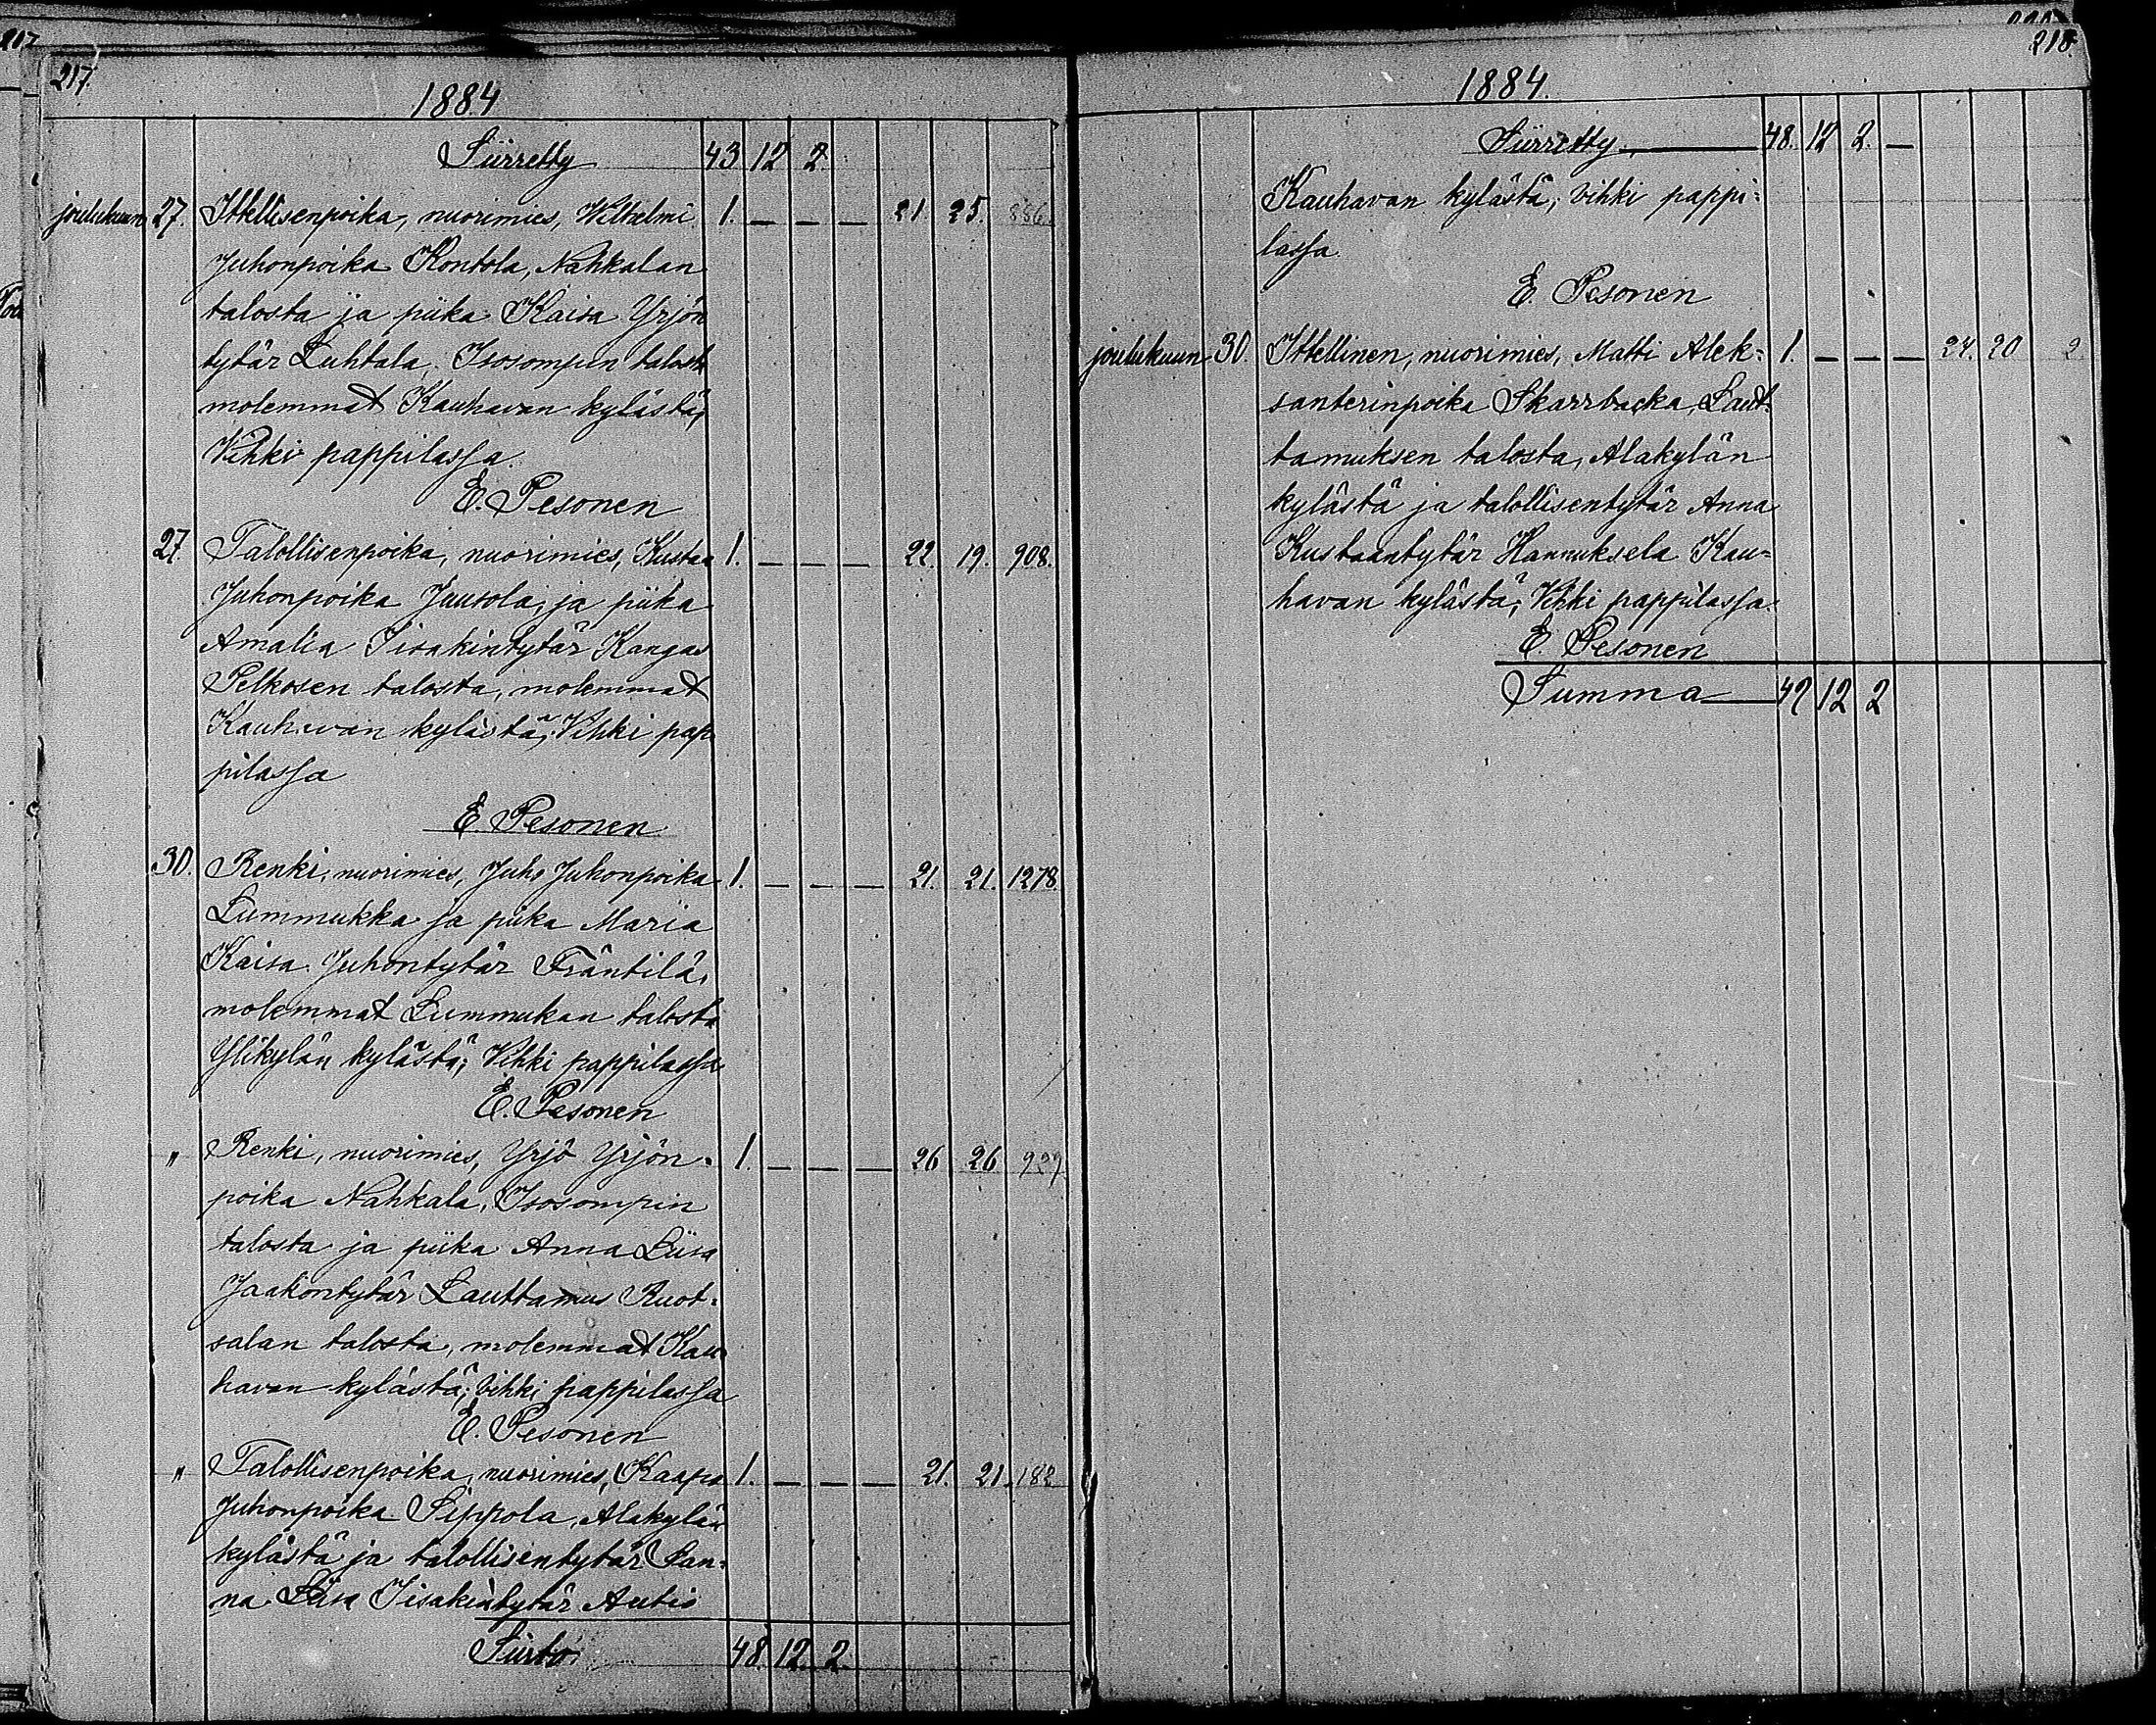 217.
1884
Siirretty 43 12 2
joulukuun 27. Ittellisenpoika, nuorimies, Vilhelmi 1. — — — 21. 25. 886.
Juhonpoika Kontola, Nahkalan
talosta ja piika Kaisa Yrjön
tytär Luhtala, Isosompin talosta
molemmat Kauhavan kylästä;
Vihki pappilassa.
E. Pesonen
27. Talollisenpoika, nuorimies, Kustaa 1. — — — 22. 19. 908.
Juhonpoika Juusola, ja piika
Amalia Iisakintytär Kangas
Pelkosen talosta, molemmat
Kauhavan kylästä; Vihki pap
pilassa
E. Pesonen
30. Renki, nuorimies, Juho Juhonpoika 1. — — — 21. 21. 1278.
Lummukka ja piika Maria
Kaisa Juhontytär Fräntilä,
molemmat Lummukan talosta
Ylikylän kylästä; Vihki pappilassa
E. Pesonen
" Renki, nuorimies, Yrjö Yrjön- 1. — — — 26 26 929
poika Nahkala, Isosompin
talosta ja piika Anna Liisa
Jaakontytär Lauttamus Ruot-
salan talosta, molemmat Kau-
havan kylästä; Vihki pappilassa
E. Pesonen
" Talollisenpoika, nuorimies, Kaapo 1. — — — 21. 21. 182
Juhonpoika Sippola, Alakylän
kylästä ja talollisentytär San-
na Liisa Iisakintytär Autio
Siirto 48. 12. 2.
218
1884.
Siirretty 48. 12 2. —
Kauhavan kylästä; Vihki pappi-
lassa.
E. Pesonen
joulukuun 30. Ittellinen, nuorimies, Matti Alek- 1. — — — 24. 20 2
santerinpoika Skarrbacka, Laut-
tamuksen talosta, Alakylän
kylästä ja talollisentytär Anna
Kustaantytär Hannuksela Kau-
havan kylästä; Vihki pappilassa.
E. Pesonen
Summa 49 12 2